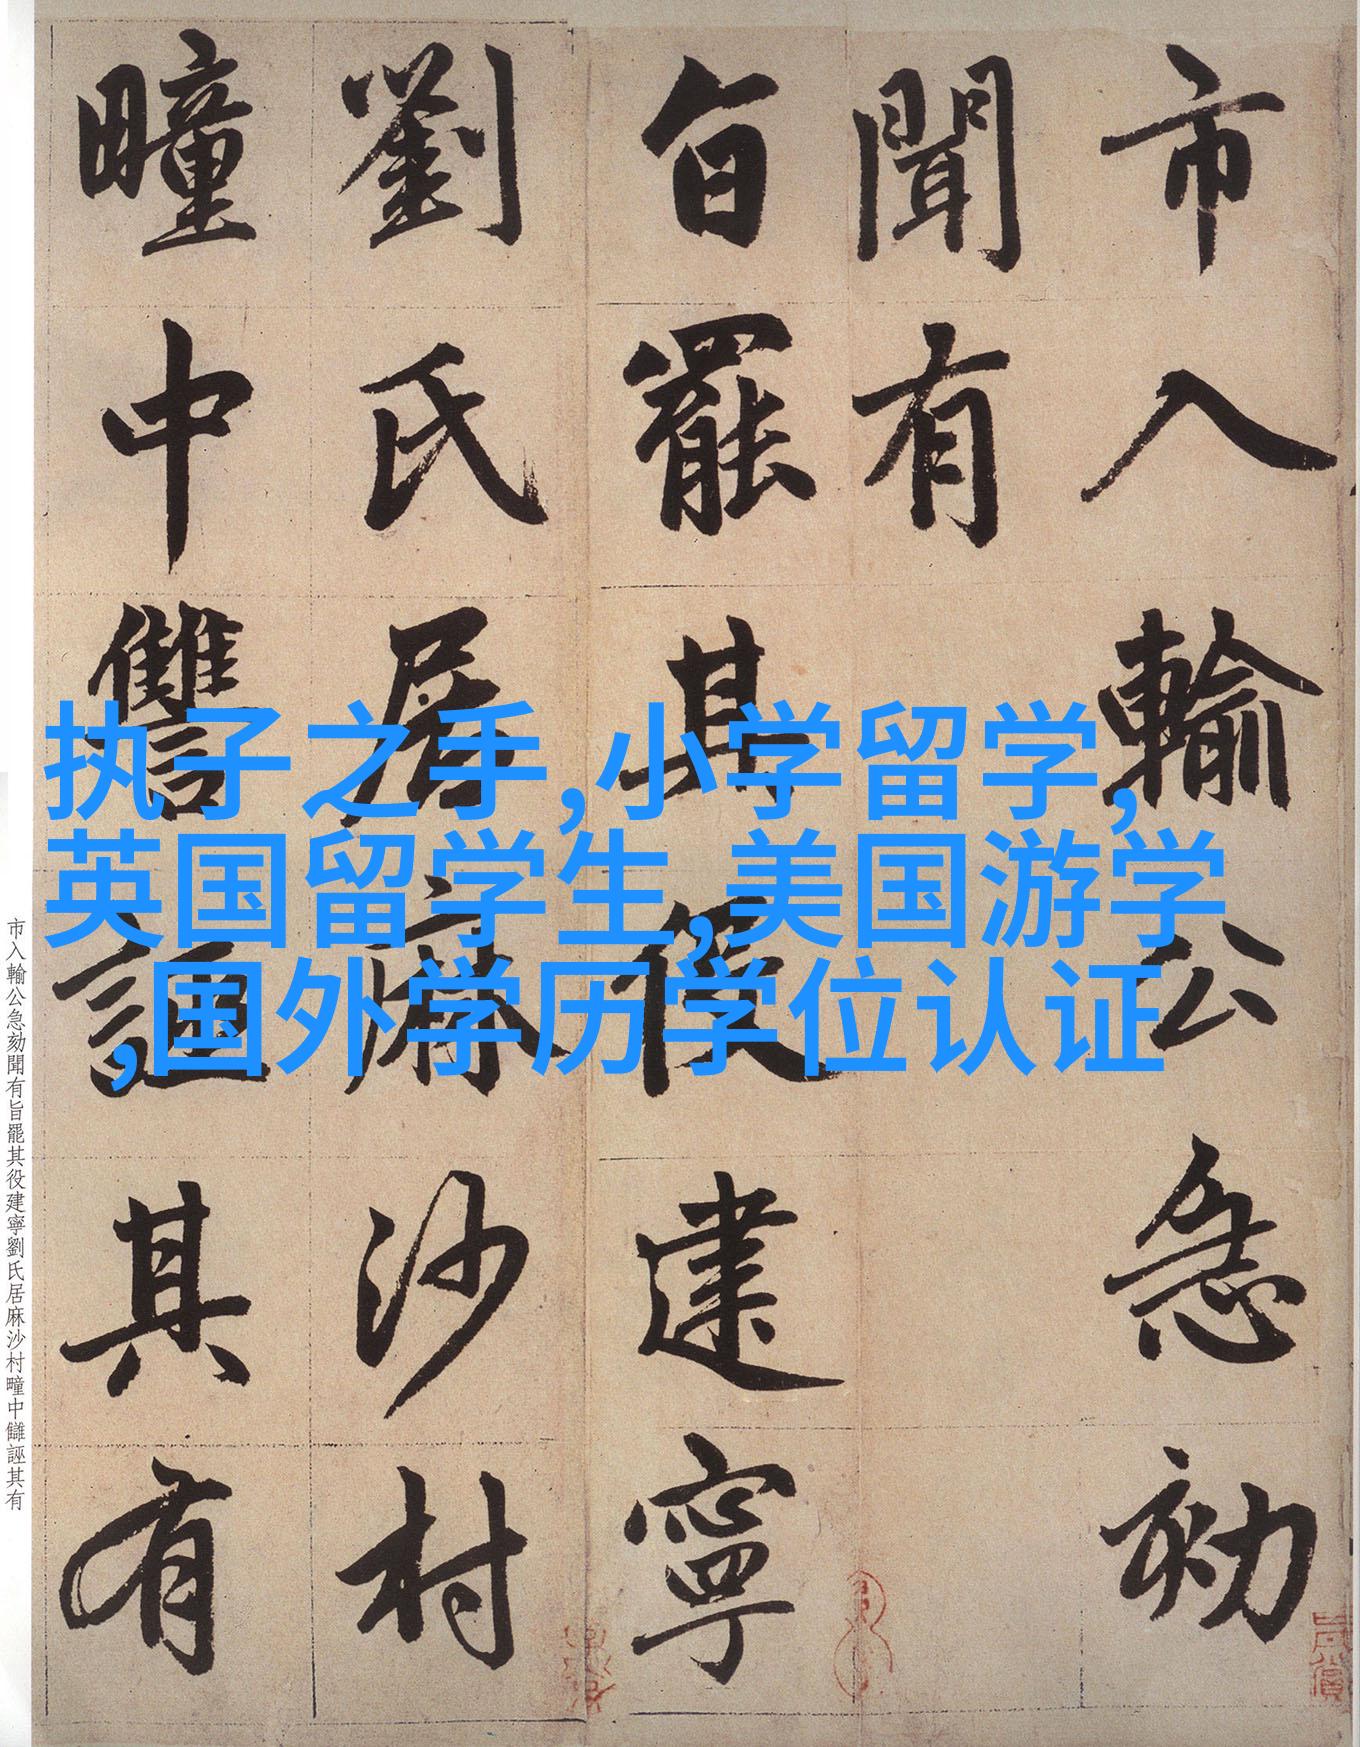 市入輸公急劾
聞有
旨罷其役建寧
劉氏居麻沙村
疃中讐誣其有
执子之手,小学留学,
英国留学生,美国游学
,国外学历学位认证
市入輸公急劾聞有旨罷其役建寧劉氏居麻沙村疃中讎誣其有